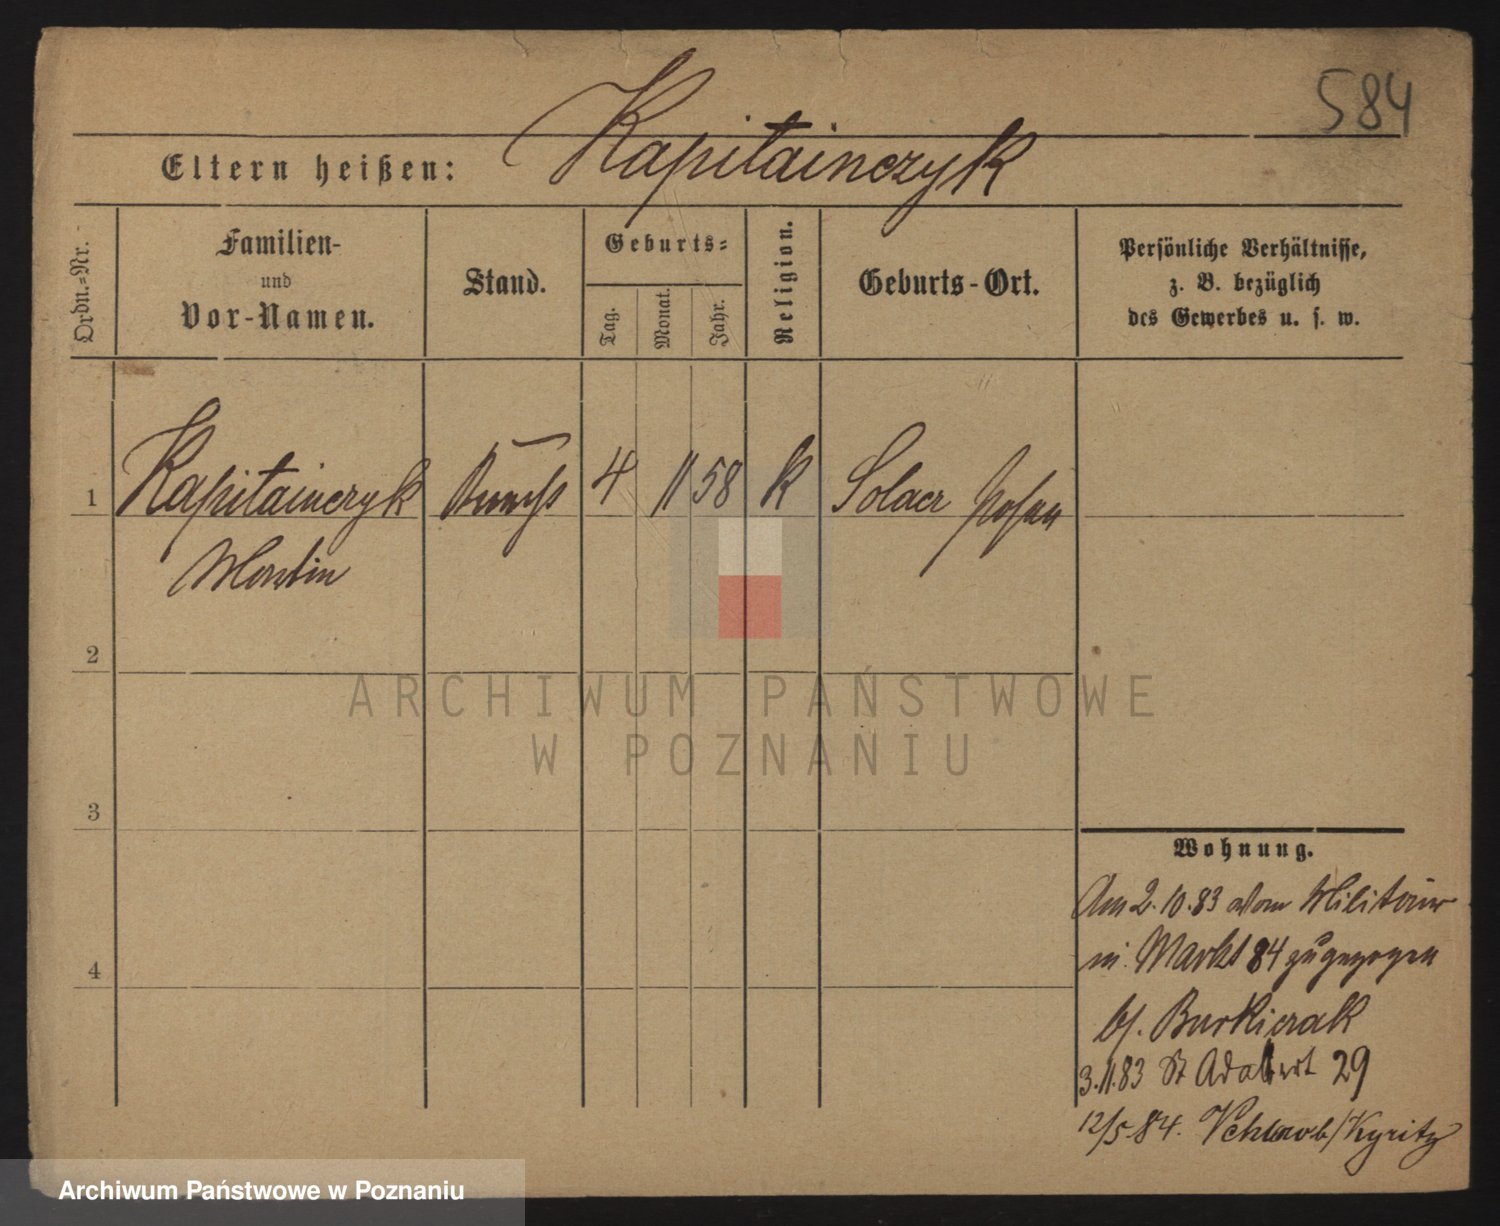 584
Eltern heißen: Kapitainczyk
Ordn.=Nr.
Familien-
und
Vor-Namen.
Stand.
Geburts=
Tag.
Monat.
Jahr.
Religion.
Geburts-Ort.
Persönliche Verhältnisse,
z. B. bezüglich
des Gewerbes u. s. w.
1 Kapitainczyk 4 11 58 k Solacz Posen
Martin
2
3
4
Wohnung.
Am 2.10.83 vom Militair
in Markt 84 zugezogen
bf. Burkierak
3.11.83 St Adalbert 29
12/5 84. /Kyritz
ARCHIWUM PAŃSTWOWE
W POZNANIU
Archiwum Państwowe w Poznaniu